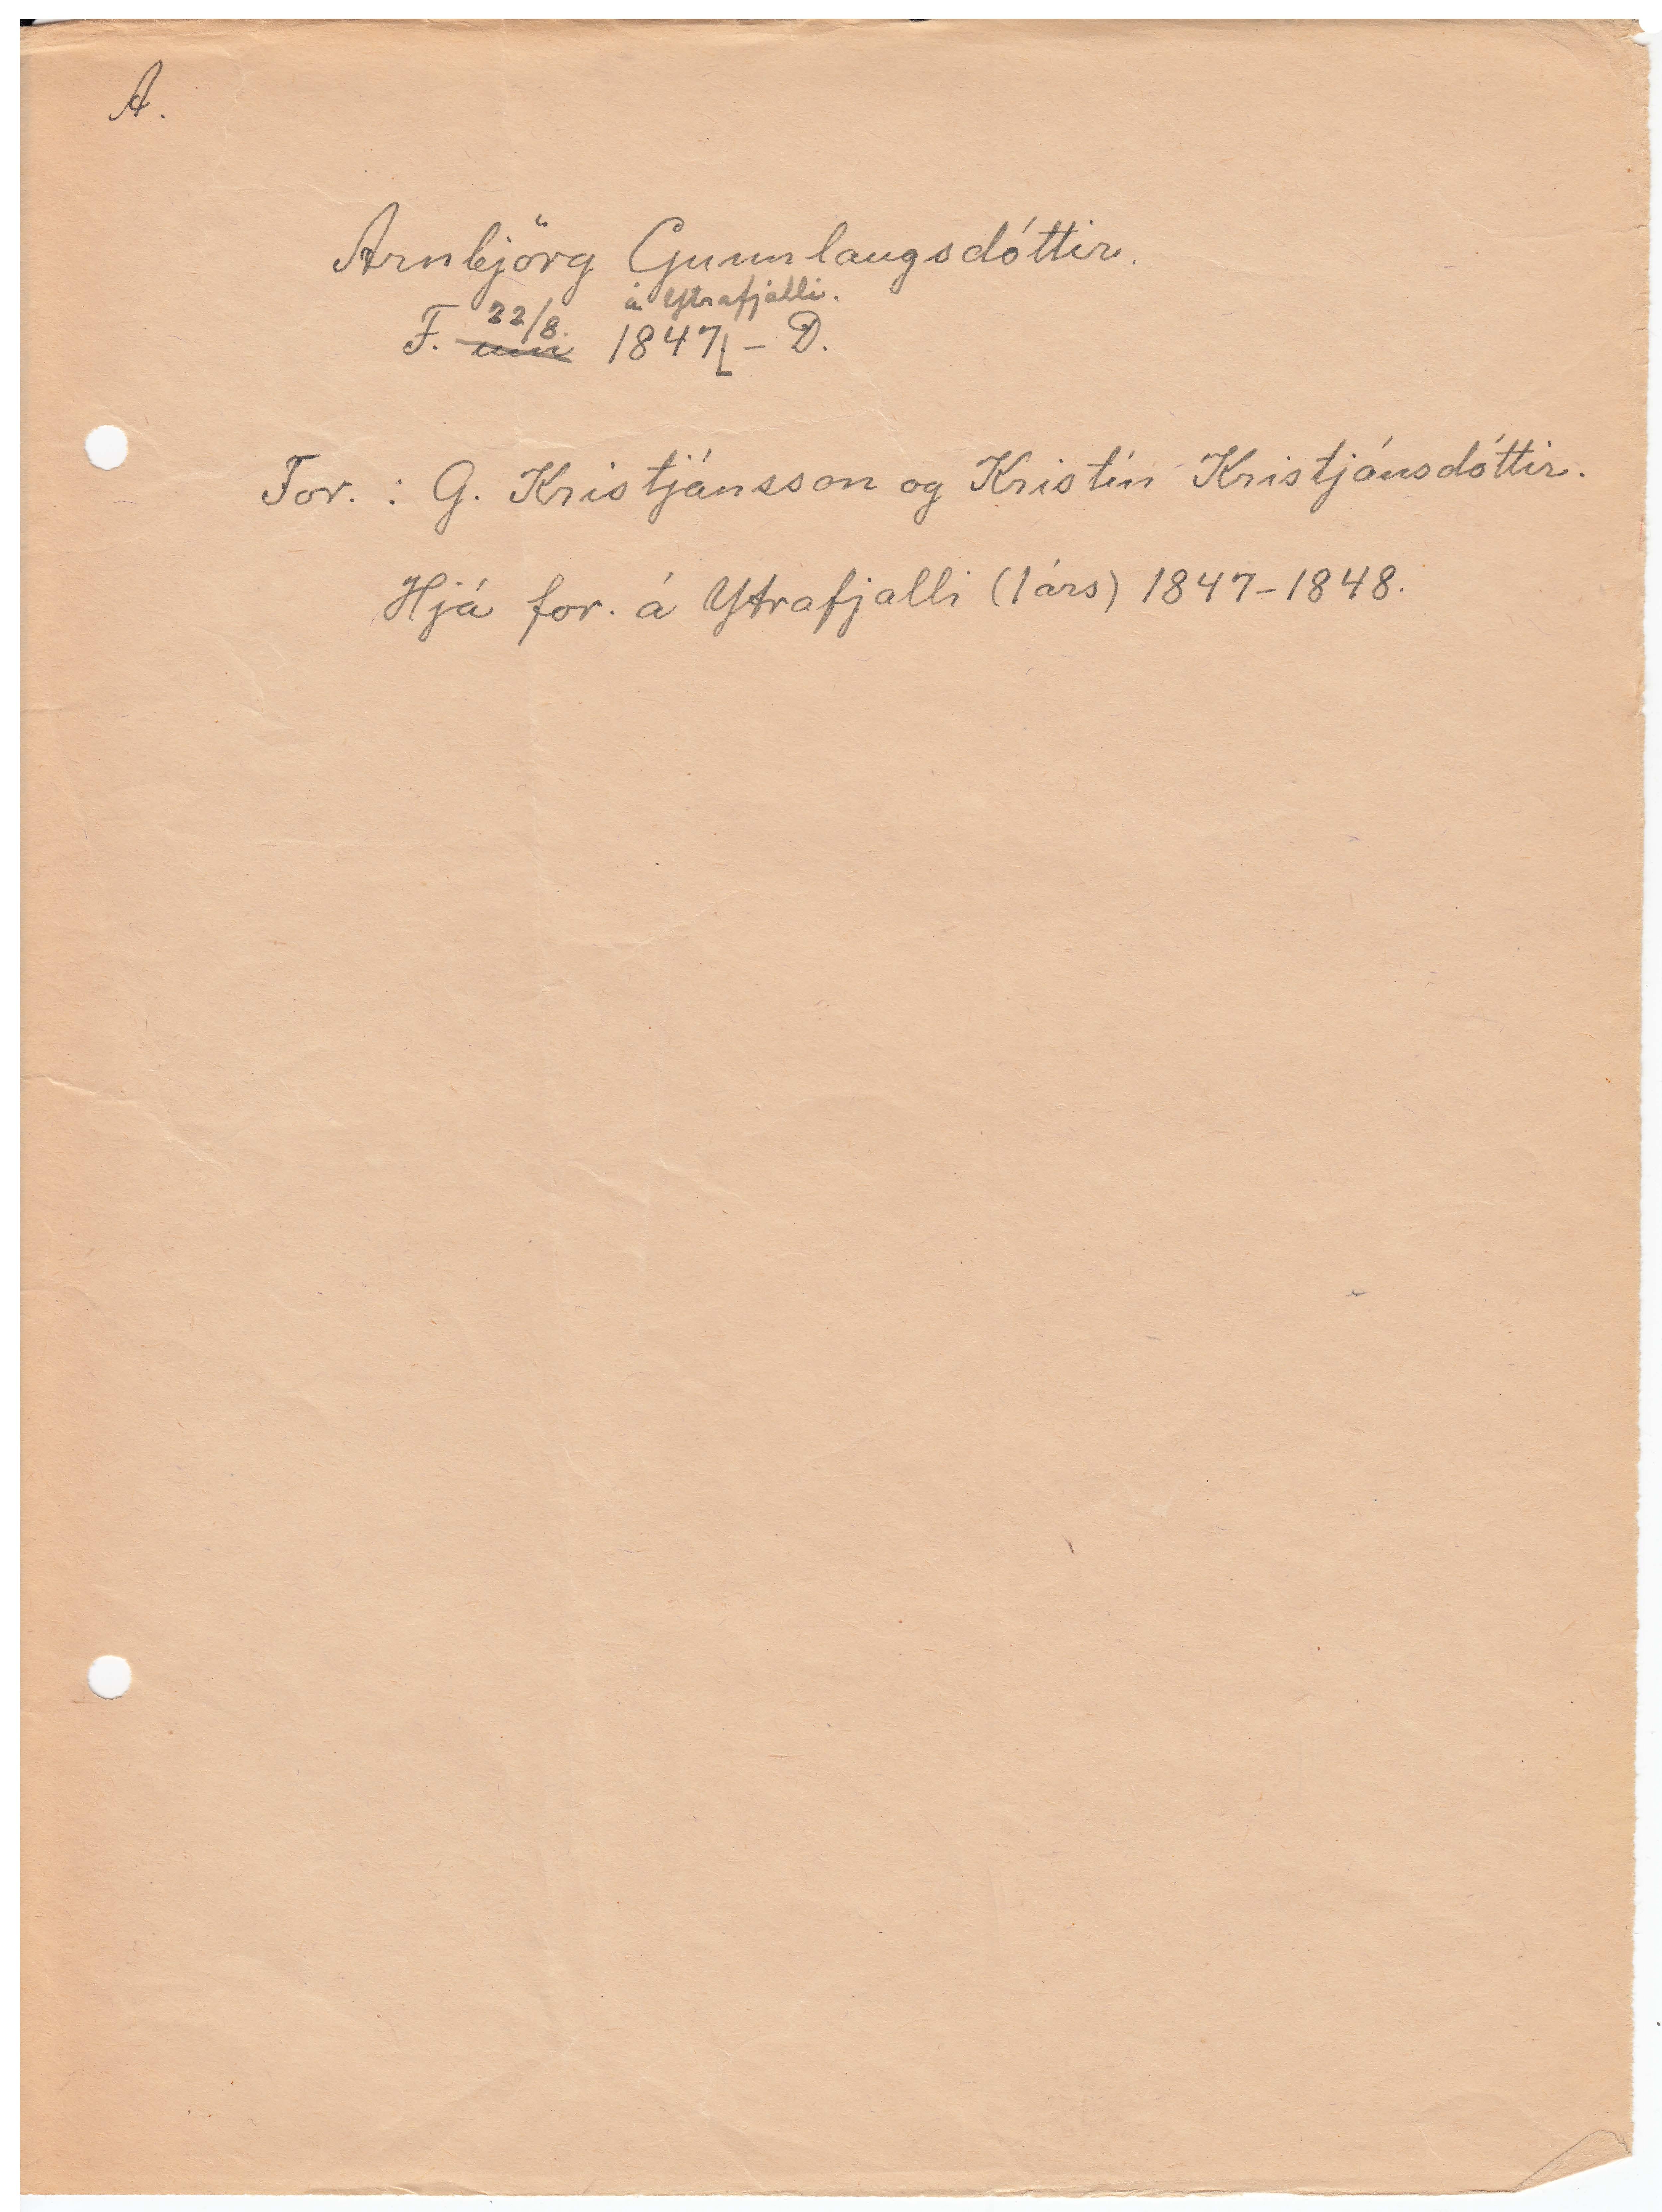 A.
Arnbjörg Gunnlaugsdóttir.
á Ytrafjalli.
F. 22/8. um 1847 – D.
For. : G. Kristjánsson og Kristín Kristjánsdóttir.
Hjá for. á Ytrafjalli (1 árs) 1847-1848.